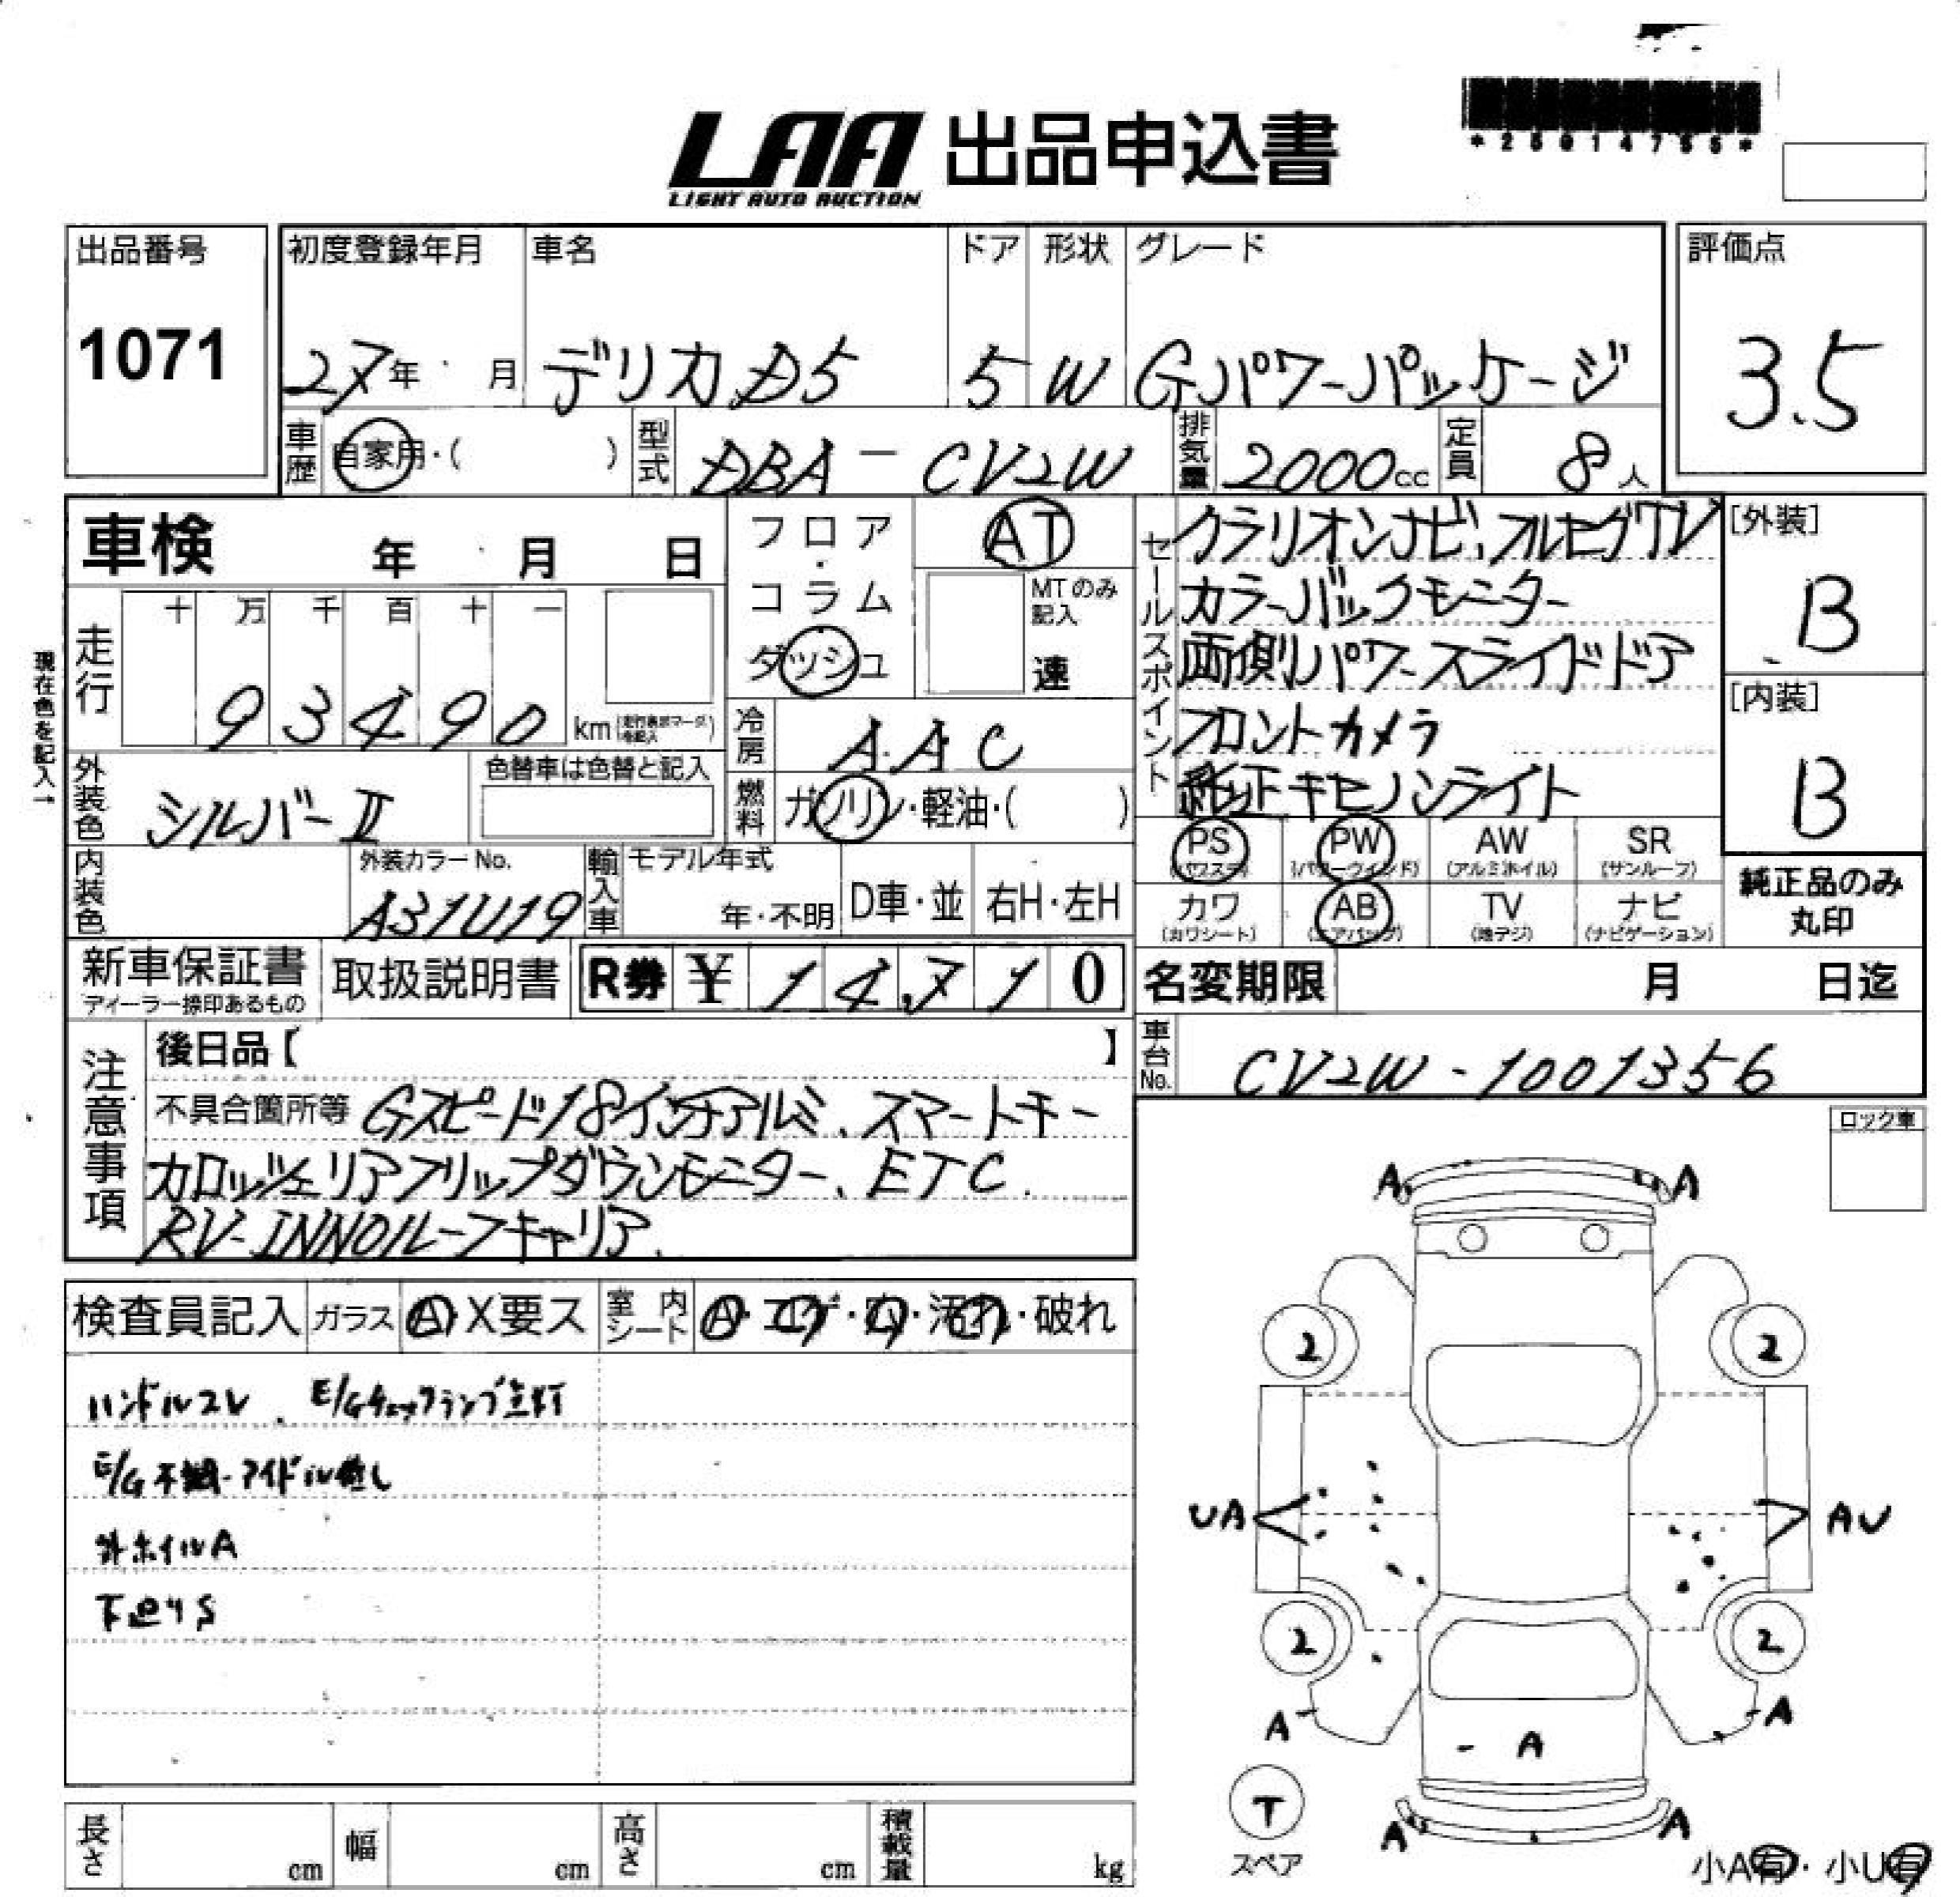 LAA 出品申込書
LIGHT AUTO AUCTION
*25014755*
出品番号
1071
初度登録年月 車名 ドア 形状 グレード
27年 月 デリカD5 5 W Gパワーパッケージ
評価点
3.5
車歴 自家用・( ) 型式 DBA-CV2W 排気量 2000cc 定員 8人
車検 年 月 日
フロア・コラム
ダッシュ
AT
MTのみ記入
速
走行 十 万 千 百 十 一
93490 km
現在色を記入→
冷房 AAC
外装色 シルバーⅡ
色替車は色替と記入
燃料 ガソリン・軽油・( )
内装色
外装カラーNo.
A31U19
輸入車 モデル年式
年・不明 D車・並 右H・左H
セールスポイント
クラリオンナビ、フルセグTV
カラーバックモニター
両側パワースライドドア
フロントカメラ
純正キセノンライト
[外装]
B
[内装]
B
PS PW AW SR
(パワステ) (パワーウインド) (アルミホイル) (サンルーフ)
カワ AB TV ナビ
(カワシート) (エアバッグ) (地デジ) (ナビゲーション)
純正品のみ
丸印
新車保証書 取扱説明書 R券 ¥ 14,710
ディーラー捺印あるもの
名変期限 月 日迄
車台No. CV2W-1001356
注意事項
後日品【 】
不具合箇所等 Gスピード18インチアルミ、スマートキー
カロッツェリアフリップダウンモニター、ETC.
RV-INNOルーフキャリア.
ロック車
検査員記入 ガラス A・X要ス 室内シート A・コゲ・穴・汚れ・破れ
ハンドルスレ、E/Gチェックランプ点灯
E/G不調-アイドル無し
外ホイルA
下廻りS
A A
2 2
UA AU
2 2
A A
A
T
スペア
A A
小A有・小U有
長さ cm 幅 cm 高さ cm 積載量 kg